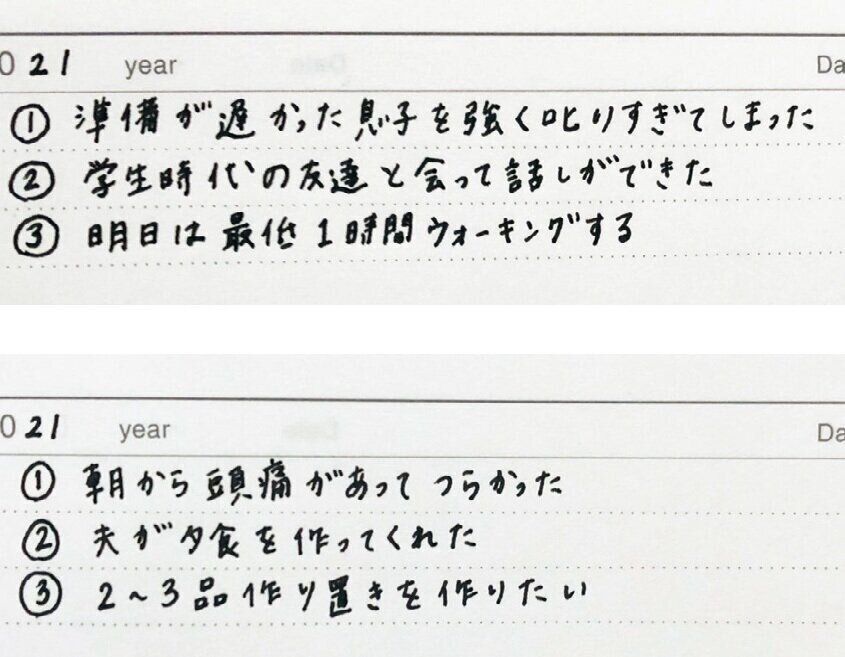 021 year Da
① 準備が遅かった息子を強く叱りすぎてしまった
② 学生時代の友達と会って話しができた
③ 明日は最低1時間ウォーキングする
021 year Da
① 朝から頭痛があってつらかった
② 夫が夕食を作ってくれた
③ 2～3品作り置きを作りたい